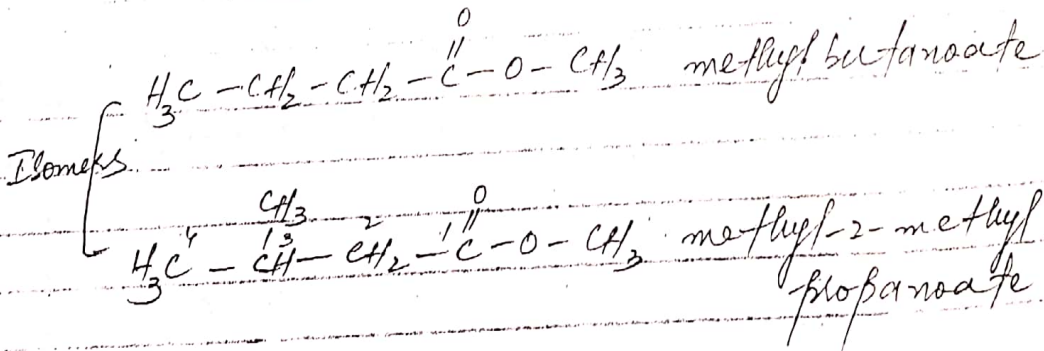 O
||
H3C - CH2 - CH2 - C - O - CH3 methyl butanoate
Isomers
CH3 O
4 | 3 2 1 ||
H3C - CH - CH2 - C - O - CH3 methyl-2-methyl
propanoate